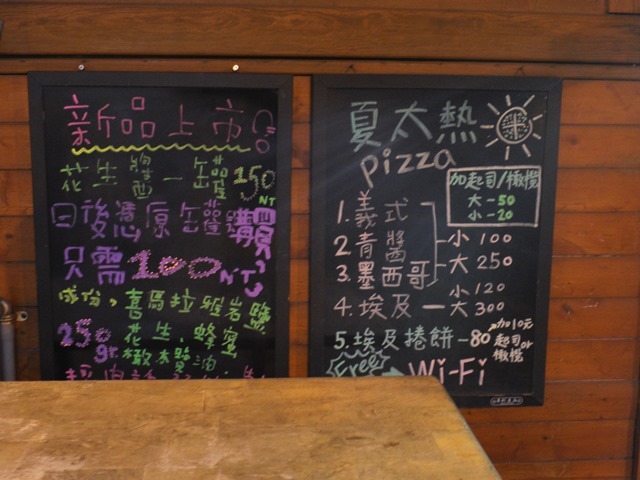 新品上市
花生醬一缶 150 NT
日後憑原缶購買
只需100NT
成份：喜馬拉雅岩鹽
花生．蜂蜜
250gr 橄欖油
夏太熱
pizza
加起司/橄欖
大-50
小-20
1. 義式
2. 青醬
3. 墨西哥
小 100
大 250
4. 埃及 小 120
大 300
5. 埃及捲餅-80 加10元起司or橄欖
Free Wi-Fi